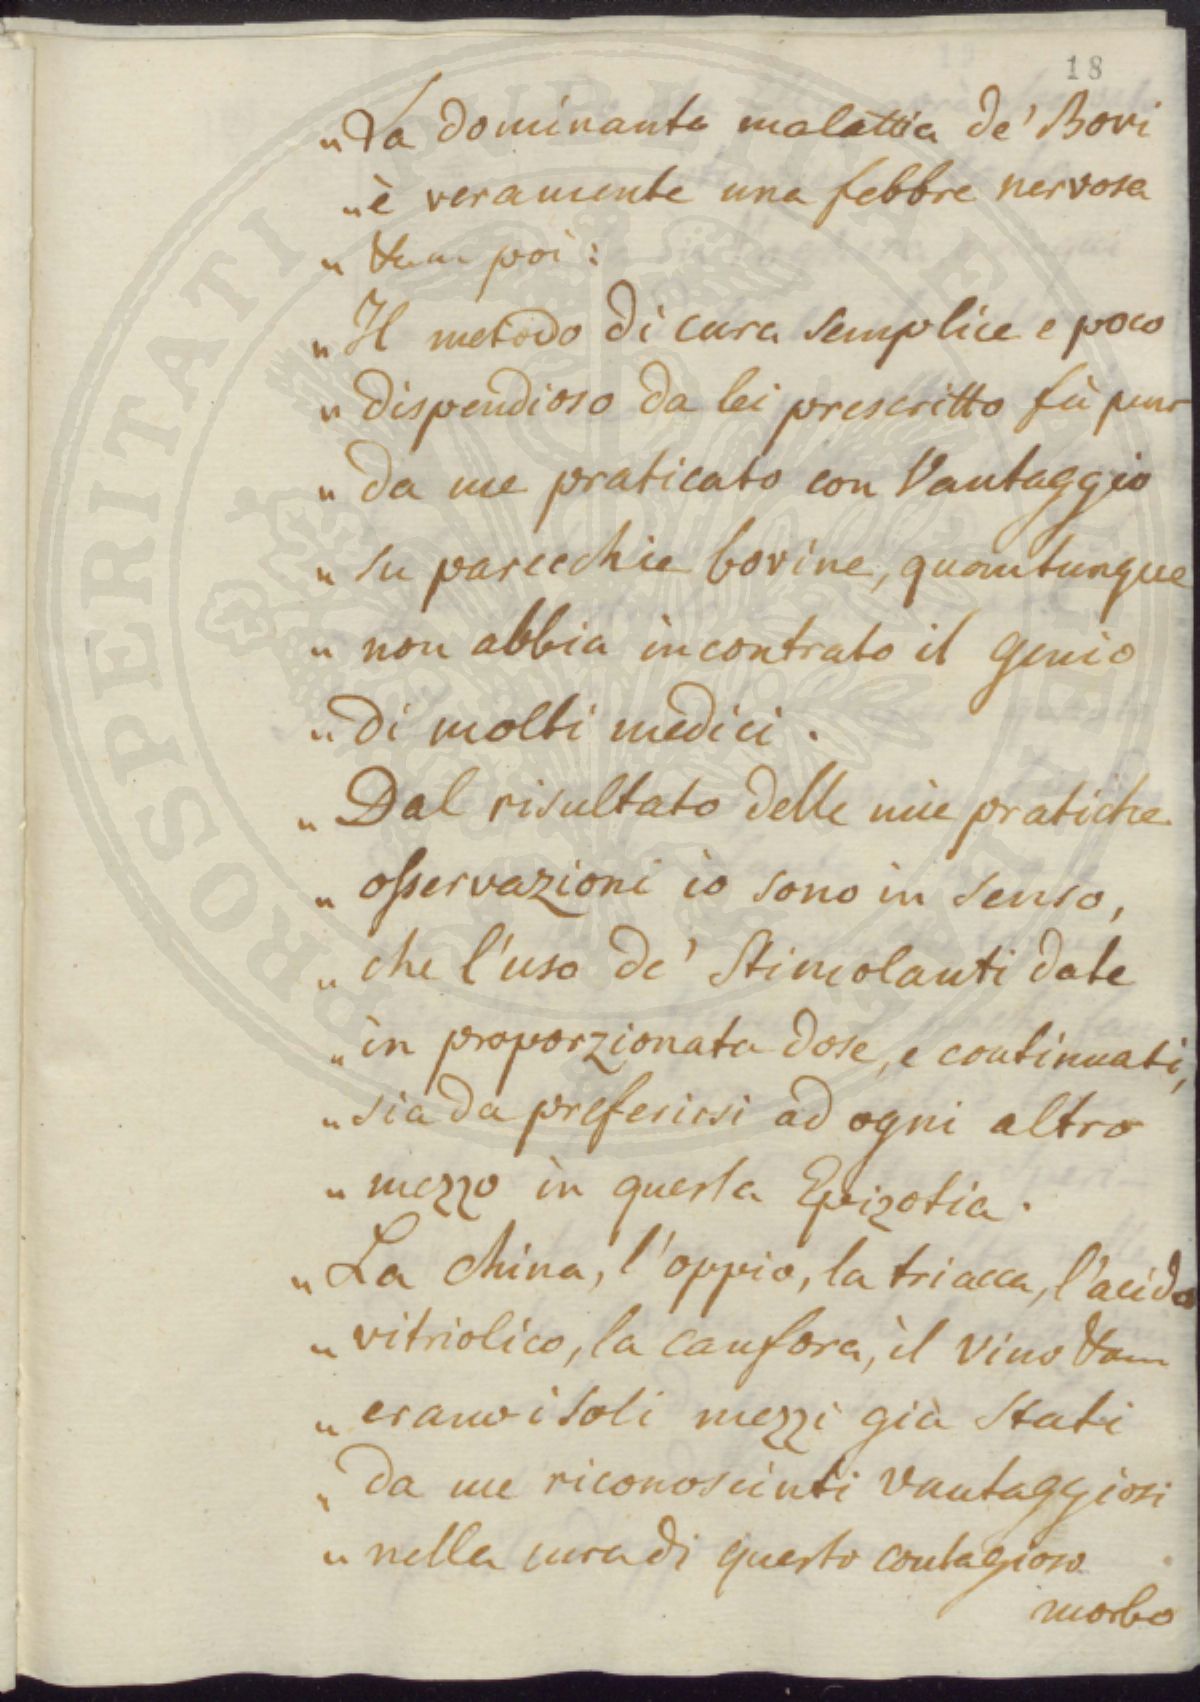 18
„ La dominante malattia de' Bovi
„ è veramente una febbre nervosa
„ poi :
„ Il metodo di cura semplice e poco
„ dispendioso da lei prescritto fù pur
„ da me praticato con Vantaggio
„ su parecchie bovine, quantunque
„ non abbia incontrato il genio
„ di molti medici .
„ Dal risultato delle mie pratiche
„ osservazioni io sono in senso,
„ che l'uso de' Stimolanti date
„ in proporzionata dose, e continuati,
„ sia da preferirsi ad ogni altro
„ mezzo in questa Epizotia .
„ La China, l'oppio, la triacca, l'acido
„ vitriolico, la canfora, il vino
„ erano i soli mezzi già stati
„ da me riconosciuti vantaggiosi
„ nella cura di questo contagioso
morbo
PROSPERITATI PUBLICAE AUGENDAE